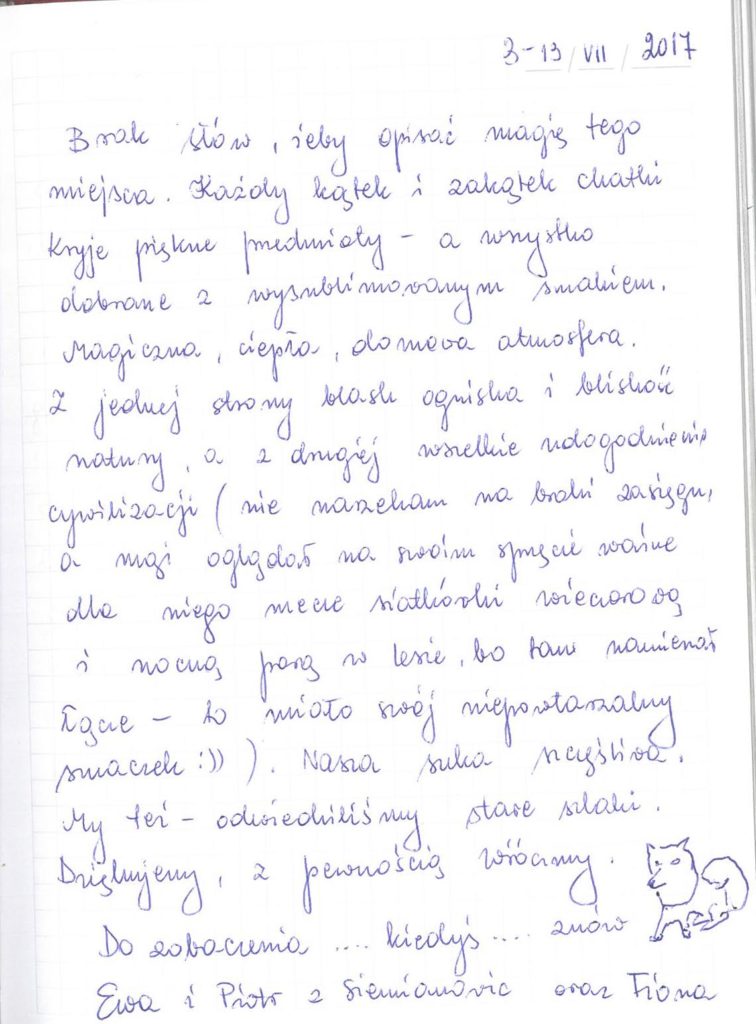 3-13/VII/2017
Brak słów, żeby opisać magię tego
miejsca. Każdy kątek i zakątek chatki
kryje piękne przedmioty - a wszystko
dobrane z wysublimowanym smakiem.
Magiczna, ciepła, domowa atmosfera.
Z jednej strony blask ogniska i bliskość
natury, a z drugiej wszelkie udogodnienia
cywilizacji (nie narzekam na brak zasięgu,
a mąż oglądał na swoim sprzęcie ważne
dla niego mecze siatkówki wieczorową
i nocną porą w lesie, bo tam namierzał
łącze - to miało swój niepowtarzalny
smaczek :)) ). Nasza suka szczęśliwa.
My też - odwiedziliśmy stare szlaki.
Dziękujemy, z pewnością wrócimy.
Do zobaczenia .... kiedyś .... znów
Ewa i Piotr z Siemianowic oraz Fiona